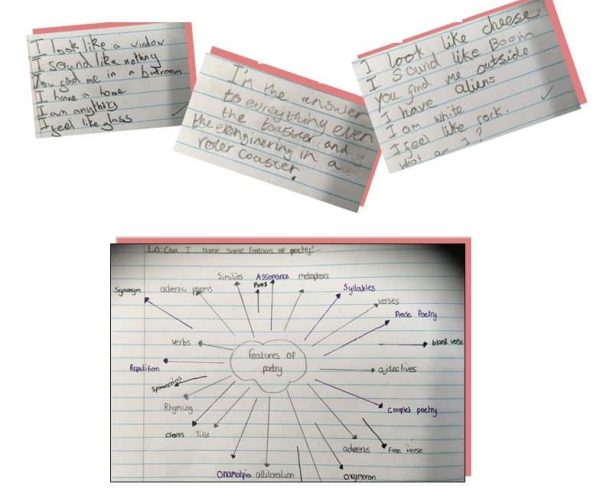 I look like a window
I sound like nothing
You find me in a bathroom
I have a home
I own anything
I feel like glass
I'm the answer
to everything even
the toaster and
the enginering in a
roler coaster.
I look like cheese.
I sound like Boom
you find me outside
I have aliens
I am white
I feel like rock.
what am I?
Lo: Can I name some features of poetry?
Similies
Assonance
metaphors
Puns
Synonym
acrostic poems
Syllables
verses
Prose Poetry
verbs
blank verse
features of
poetry
Repetition
adjectives
Rhyming
Couplet poetry
Title
adverbs
free verse
Onamatopia
alliteration
oxymoron